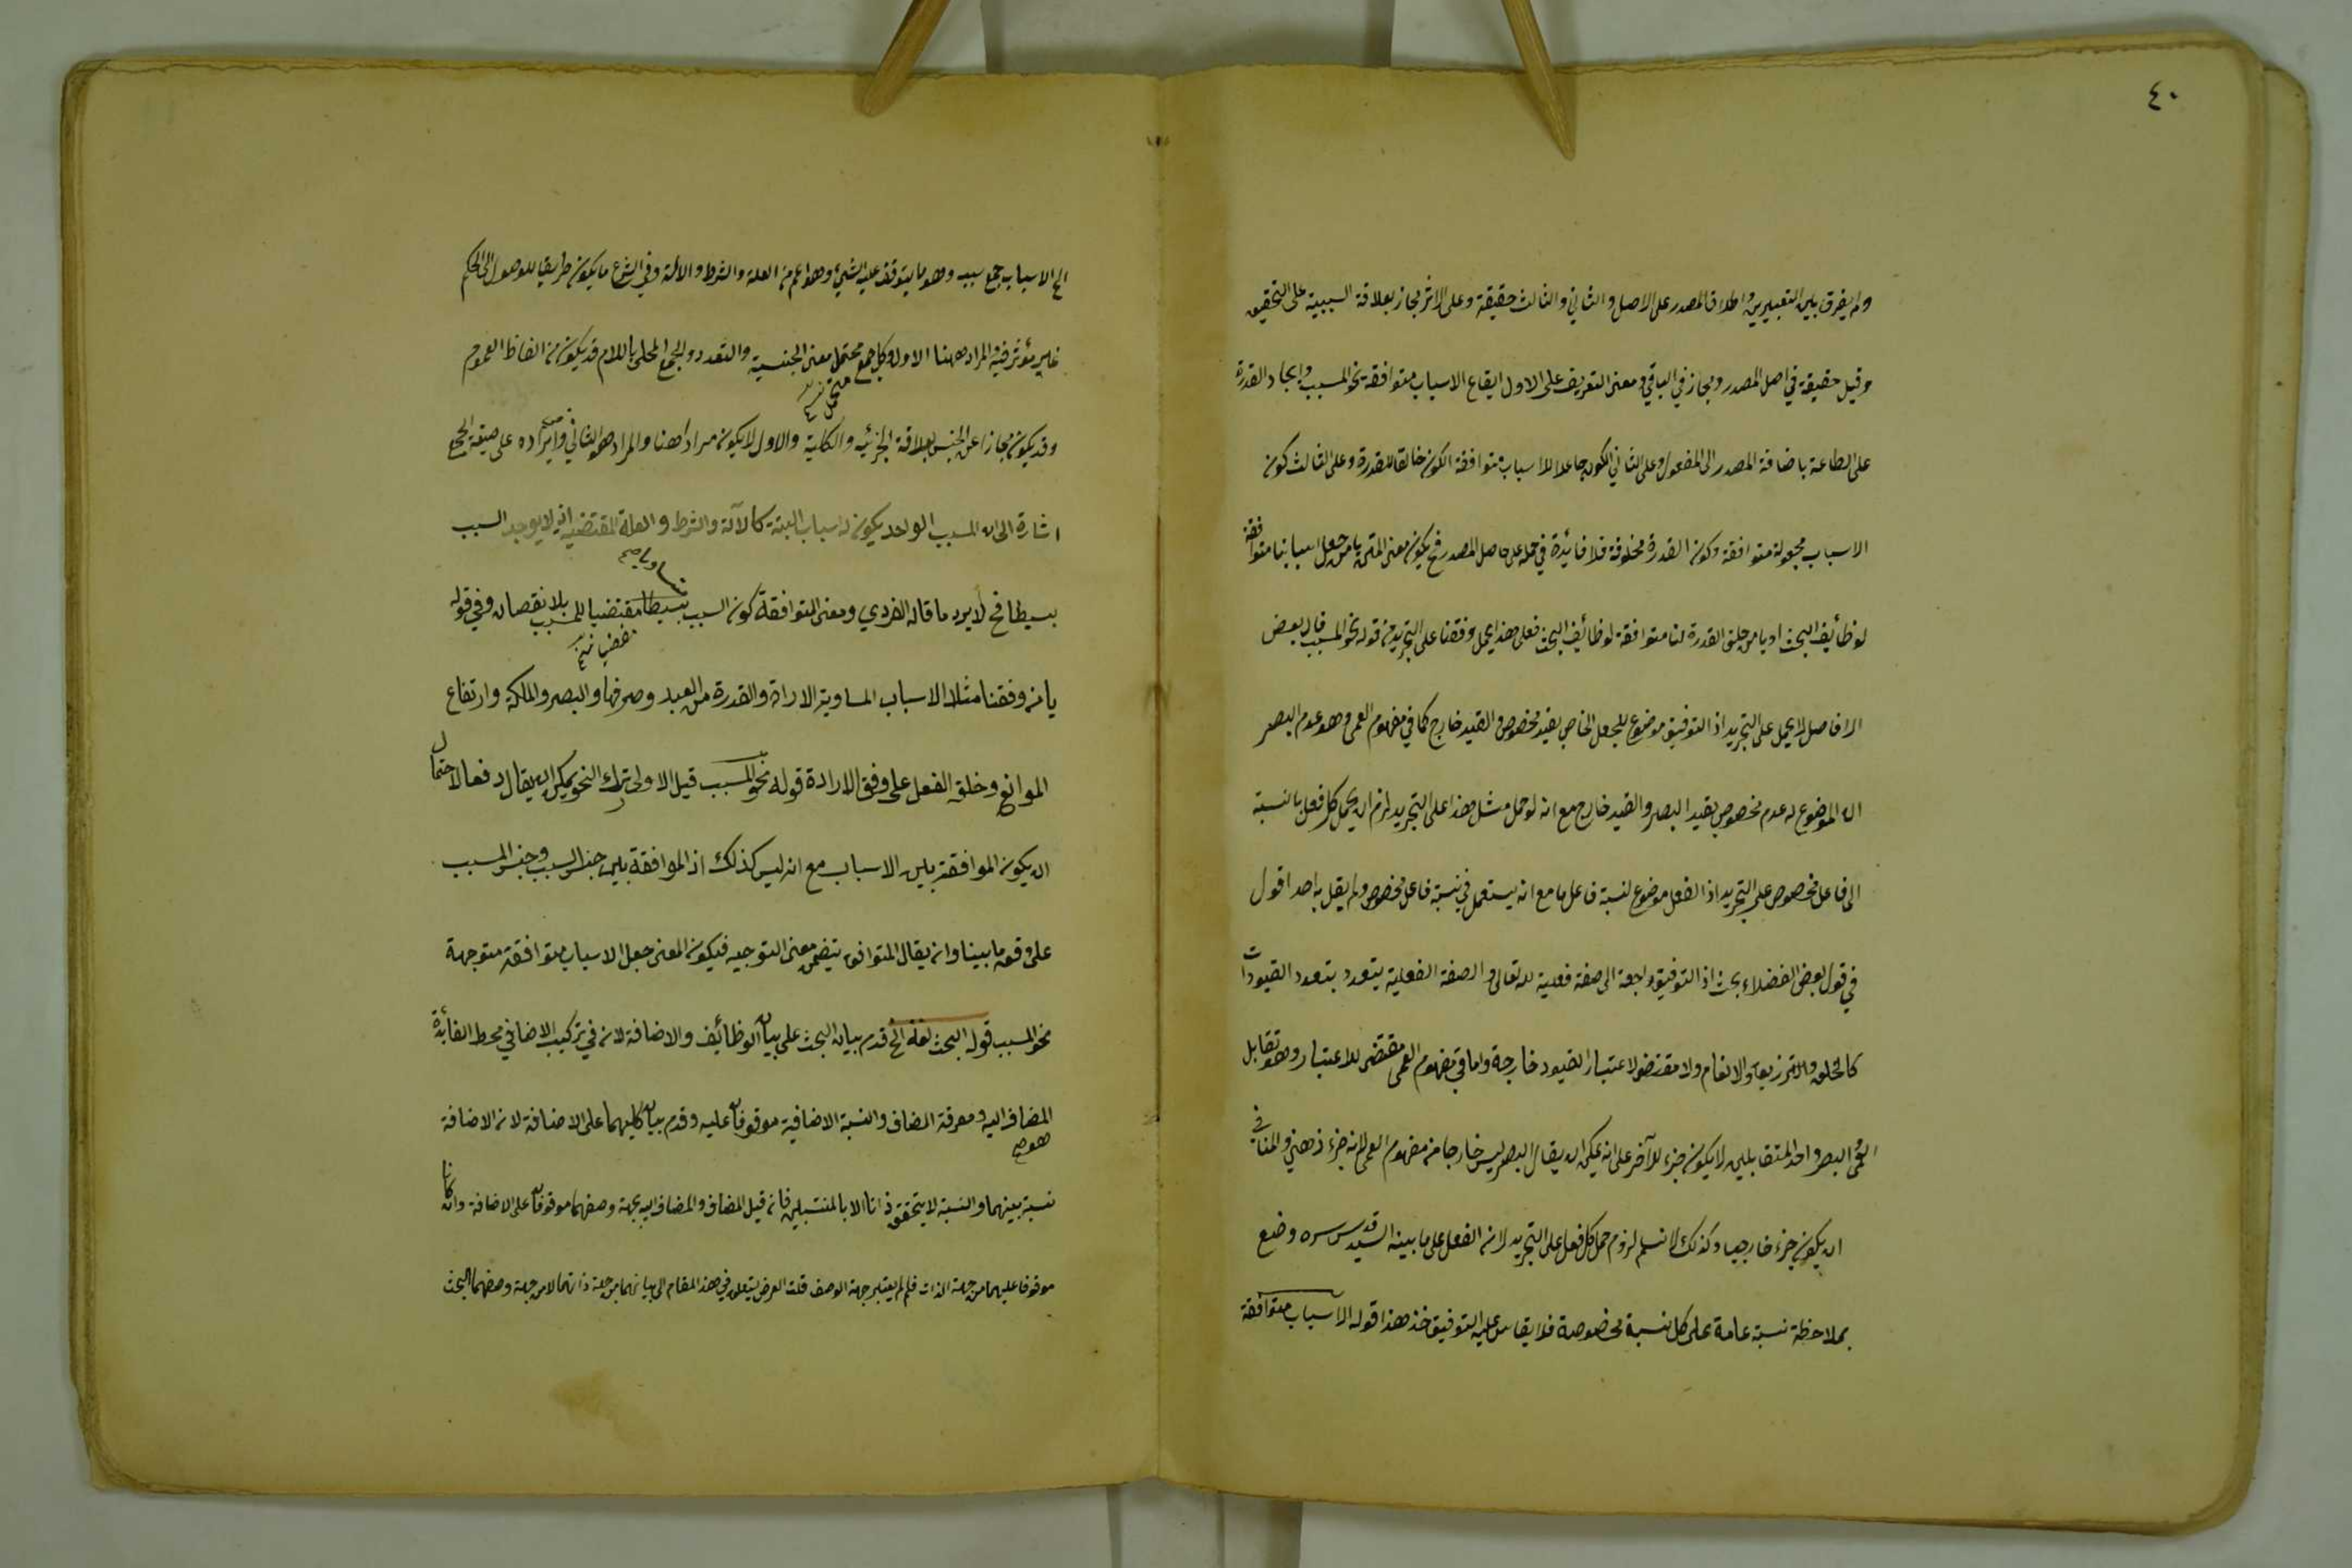 ٤٠
ولم يفرق بين التعبيرين واطلاق المصدر على الاصل والثاني والثالث حقيقة وعلى الاثر مجاز بعلاقة السببية على التحقيق
وقيل حقيقة في اصل المصدر ومجاز في الباقي ومعنى التعريف على الاول ايقاع الاسباب متوافقة نحو المسبب وايجاد القدرة
على الطاعة باضافة المصدر الى المفعول وعلى الثاني الكون جاعلا للاسباب متوافقة الكون خالقا للقدرة وعلى الثالث كون
الاسباب مجعولة متوافقة وكون القدرة مخلوقة فلا فائدة في حمله على حاصل المصدر فح يكون معنى المتن يا من جعل اسبابنا متوافقة
لوظائف البحث او يا من خلق القدرة لنا متوافقة لوظائف البحث فعلى هذا يحمل وفقنا على التجريد من قوله نحو المسبب قال بعض
الافاضل لا يحمل على التجريد اذ التوفيق موضوع للجعل الخاص بقيد مخصوص والقيد خارج كما في مفهوم العمى وهو عدم البصر
ان الموضوع له عدم مخصوص بقيد البصر والقيد خارج مع انه لو حمل مثل هذا على التجريد لزم ان يحمل كل فعل بالنسبة
الى فاعل مخصوص على التجريد اذ الفعل موضوع لنسبة فاعل ما مع انه يستعمل في نسبة فاعل مخصوص ولم يقل به احد اقول
في قول بعض الفضلاء بحث اذ التوفيق راجعة الى صفة فعلية لله تعالى والصفة الفعلية يتعدد بتعدد القيودات
كالخلق والترزيق والانعام ولا مقتض لاعتبار القيود خارجة واما في مفهوم العمى مقتضى للاعتبار وهو تقابل
العمى والبصر واحد المتقابلين لا يكون جزء للآخر على انه يمكن ان يقال البصر ليس خارجا من مفهوم العمى لانه جزء ذهني والمنافي
ان يكون جزء خارجيا وكذلك لا نسلم لزوم حمل كل فعل على التجريد لان الفعل على ما بينه السيد قدس سره وضع
بملاحظة نسبة عامة على كل نسبة مخصوصة فلا يقاس عليه التوفيق خذ هذا قوله الاسباب متوافقة
الخ الاسباب جمع سبب وهو ما يتوقف عليه الشيء وهو اعم من العلة والشرط والالة وفي الشرع ما يكون طريقا للوصول الى الحكم
غير مؤثر فيه والمراد ههنا الاول وكل جمع محتمل معنى الجنسية والتعدد والجمع المحلى باللام قد يكون من الفاظ العموم
وقد يكون مجازا عن الجنس بعلاقة الجزئية والكلية والاول لا يكون مرادا هنا والمراد هو الثاني وايراده على صيغة الجمع
اشارة الى ان المسبب الواحد يكون له اسباب البتة كالآلة والشرط والعلة المقتضية اذ لا يوجد السبب
بسيطا فح لا يرد ما قاله الفردي ومعنى المتوافقة كون السبب بسيطا مقتضيا للمسبب بلا نقصان وفي قوله
يا من وفقنا مثلا الاسباب المساوية الارادة والقدرة من العبد وصرفها والبصر والملكة وارتفاع
الموانع وخلق الفعل على وفق الارادة قوله نحو المسبب قيل الاولى ترك النحو يمكن ان يقال دفعا لاحتمال
ان يكون الموافقة بين الاسباب مع انه ليس كذلك اذ الموافقة بين جنس السبب وجنس المسبب
على وفق ما بينا وان يقال المتوافق يتضمن معنى التوجيه فيكون المعنى جعل الاسباب متوافقة متوجهة
نحو المسبب قوله البحث لغة الخ قدم بيان البحث على بيان الوظائف والاضافة لانه في تركيب الاضافي محط الفائدة
المضاف اليه ومعرفة المضاف والنسبة الاضافية موقوفان عليه وقدم بيان كليهما على الاضافة لان الاضافة
نسبة بينهما والنسبة لا يتحقق ذاتا الا بالمنتسبين فان قيل المضاف والمضاف اليه بجهة وصفهما موقوفان على الاضافة وان كانا
موقوفا عليهما من جهة الذات فلم لم يعتبر جهة الوصف قلت الغرض يتعلق في هذا المقام الى بيانهما من جهة ذاتهما لا من جهة وصفهما البحث